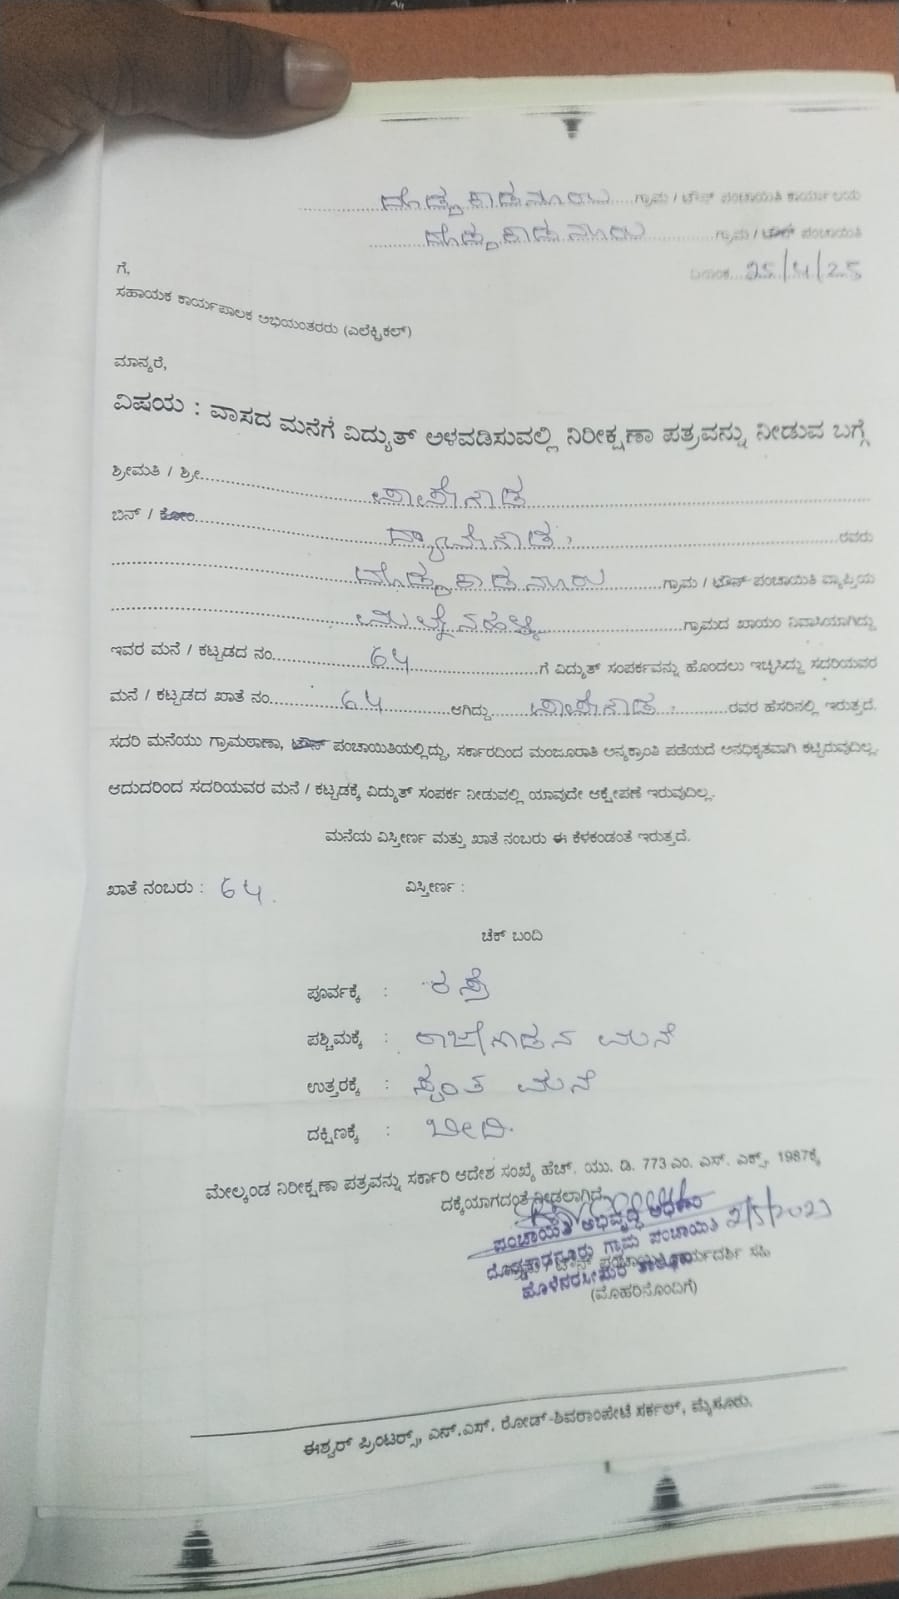 ದೊಡ್ಡಕಾಡನೂರು ಗ್ರಾಮ / ಟೌನ್ ಪಂಚಾಯಿತಿ ಕಾರ್ಯಾಲಯ
ದೊಡ್ಡಕಾಡನೂರು ಗ್ರಾಮ / ಟೌನ್ ಪಂಚಾಯಿತಿ
ದಿನಾಂಕ...25/4/25
ಗೆ,
ಸಹಾಯಕ ಕಾರ್ಯಪಾಲಕ ಅಭಿಯಂತರರು (ಎಲೆಕ್ಟ್ರಿಕಲ್)
ಮಾನ್ಯರೆ,
ವಿಷಯ : ವಾಸದ ಮನೆಗೆ ವಿದ್ಯುತ್ ಅಳವಡಿಸುವಲ್ಲಿ ನಿರೀಕ್ಷಣಾ ಪತ್ರವನ್ನು ನೀಡುವ ಬಗ್ಗೆ
ಶ್ರೀಮತಿ / ಶ್ರೀ ಪಾಪೇಗೌಡ
ಬಿನ್ / ಕೋಂ ದ್ಯಾವೇಗೌಡ, ರವರು
ದೊಡ್ಡಕಾಡನೂರು ಗ್ರಾಮ / ಟೌನ್ ಪಂಚಾಯಿತಿ ವ್ಯಾಪ್ತಿಯ
ಗ್ರಾಮದ ಖಾಯಂ ನಿವಾಸಿಯಾಗಿದ್ದು
ಇವರ ಮನೆ / ಕಟ್ಟಡದ ನಂ. 64 ಗೆ ವಿದ್ಯುತ್ ಸಂಪರ್ಕವನ್ನು ಹೊಂದಲು ಇಚ್ಛಿಸಿದ್ದು ಸದರಿಯವರ
ಮನೆ / ಕಟ್ಟಡದ ಖಾತೆ ನಂ. 64 ಆಗಿದ್ದು ಪಾಪೇಗೌಡ. ರವರ ಹೆಸರಿನಲ್ಲಿ ಇರುತ್ತದೆ.
ಸದರಿ ಮನೆಯು ಗ್ರಾಮಠಾಣಾ, ಟೌನ್ ಪಂಚಾಯಿತಿಯಲ್ಲಿದ್ದು, ಸರ್ಕಾರದಿಂದ ಮಂಜೂರಾತಿ ಅನ್ಯಕ್ರಾಂತಿ ಪಡೆಯದೆ ಅನಧಿಕೃತವಾಗಿ ಕಟ್ಟಿರುವುದಿಲ್ಲ.
ಆದುದರಿಂದ ಸದರಿಯವರ ಮನೆ / ಕಟ್ಟಡಕ್ಕೆ ವಿದ್ಯುತ್ ಸಂಪರ್ಕ ನೀಡುವಲ್ಲಿ ಯಾವುದೇ ಆಕ್ಷೇಪಣೆ ಇರುವುದಿಲ್ಲ.
ಮನೆಯ ವಿಸ್ತೀರ್ಣ ಮತ್ತು ಖಾತೆ ನಂಬರು ಈ ಕೆಳಕಂಡಂತೆ ಇರುತ್ತದೆ.
ಖಾತೆ ನಂಬರು : 64. ವಿಸ್ತೀರ್ಣ :
ಚೆಕ್ ಬಂದಿ
ಪೂರ್ವಕ್ಕೆ : ರಸ್ತೆ
ಪಶ್ಚಿಮಕ್ಕೆ : ರಾಜೇಗೌಡನ ಮನೆ
ಉತ್ತರಕ್ಕೆ : ಸ್ವಂತ ಮನೆ
ದಕ್ಷಿಣಕ್ಕೆ : ಬೀದಿ.
ಮೇಲ್ಕಂಡ ನಿರೀಕ್ಷಣಾ ಪತ್ರವನ್ನು ಸರ್ಕಾರಿ ಆದೇಶ ಸಂಖ್ಯೆ ಹೆಚ್. ಯು. ಡಿ. 773 ಎಂ. ಎಸ್. ಎಕ್ಸ್. 1987ಕ್ಕೆ
ದಕ್ಕೆಯಾಗದಂತೆ ನೀಡಲಾಗಿದೆ
ಪಂಚಾಯಿತಿ ಅಭಿವೃದ್ಧಿ ಅಧಿಕಾರಿ
ದೊಡ್ಡಕಾಡನೂರು ಗ್ರಾಮ ಪಂಚಾಯಿತಿ
ಹೊಳೆನರಸೀಪುರ ತಾಲ್ಲೂಕು
(ಮೊಹರಿನೊಂದಿಗೆ)
ಈಶ್ವರ್ ಪ್ರಿಂಟರ್ಸ್, ಎನ್.ಎಸ್. ರೋಡ್-ಶಿವರಾಂಪೇಟೆ ಸರ್ಕಲ್, ಮೈಸೂರು.